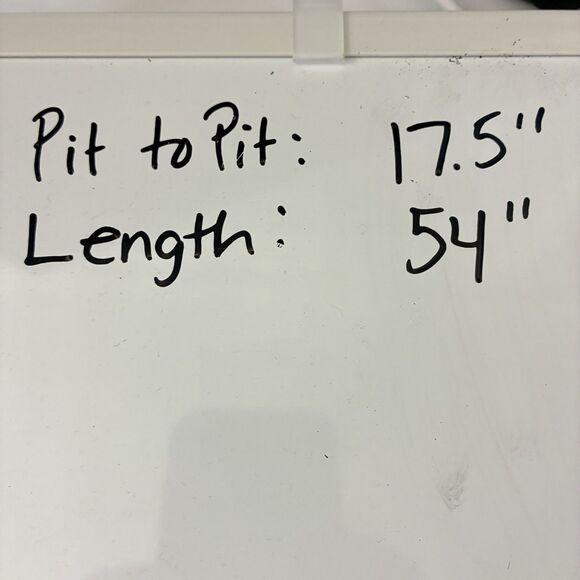 Pit to Pit: 17.5"
Length: 54"